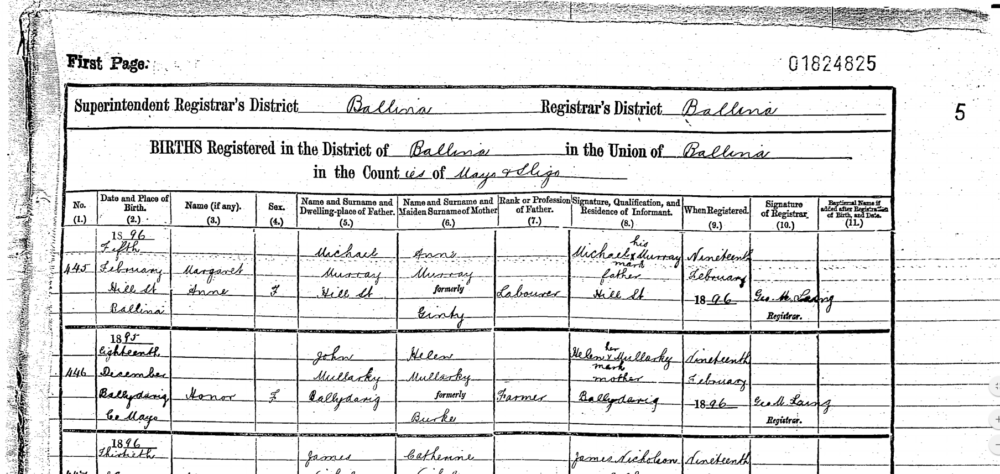 First Page.
01824825
Superintendent Registrar's District Ballina Registrar's District Ballina
5
BIRTHS Registered in the District of Ballina in the Union of Ballina
in the Counties of Mayo & Sligo
No. (1.) Date and Place of Birth. (2.) Name (if any). (3.) Sex. (4.) Name and Surname and Dwelling-place of Father. (5.) Name and Surname and Maiden Surname of Mother (6.) Rank or Profession of Father. (7.) Signature, Qualification, and Residence of Informant. (8.) When Registered. (9.) Signature of Registrar. (10.) Baptismal Name if added after Registration of Birth, and Date. (11.)
1896 his
Fifth Michael Anne Michael x Murray Nineteenth
mark
445 February Margaret Murray Murray father February
Hill St Anne F Hill St formerly Labourer Hill St 1896 Geo. M. Laing
Ballina Ginty Registrar.
1895 her
Eighteenth John Helen Helen x Mullarky Nineteenth
mark
446 December Mullarky Mullarky mother February
Ballydavig Honor F Ballydavig formerly Farmer Ballydavig 1896 Geo. M. Laing
Co Mayo Burke Registrar.
1896
Thirtieth James Catherine James Nicholson Nineteenth